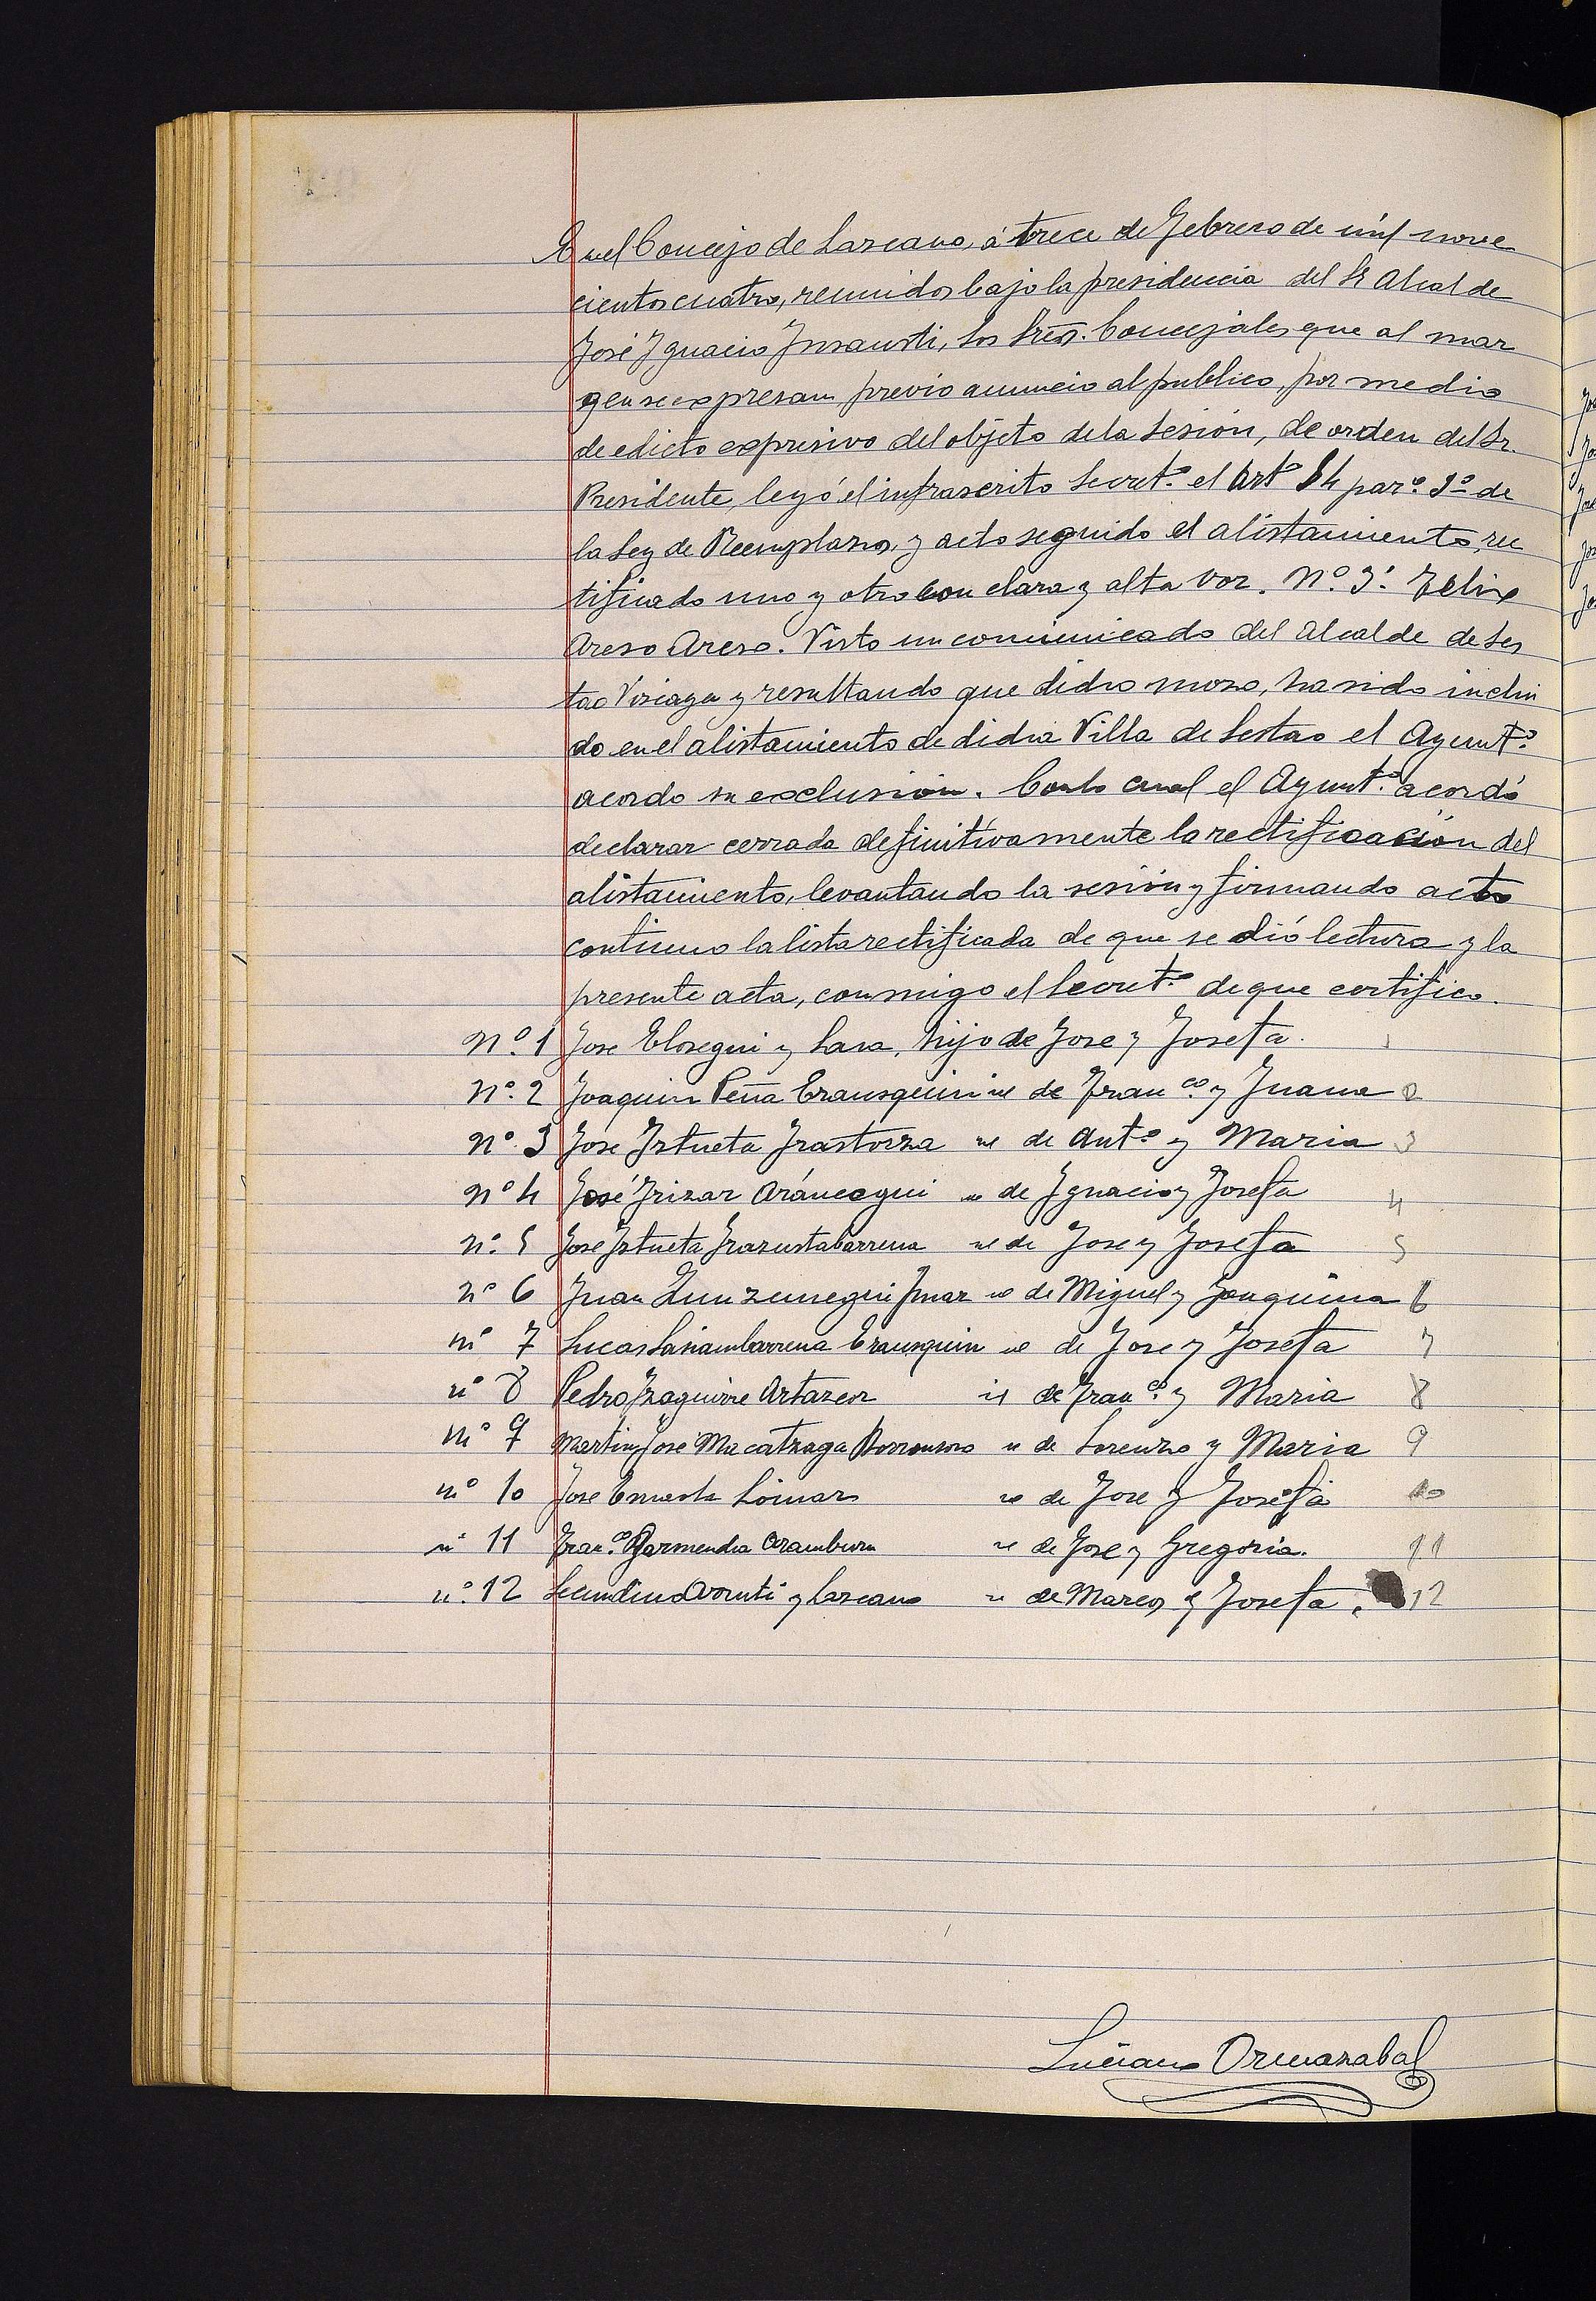 En el Concejo de Lazcano, á trece de Febrero de mil nove
cientos cuatro, reunidos bajo la presidencia del Sr Alcalde
José Ygnacio Ynsausti, los Sres. Concejales que al mar
gen se expresan, previo anuncio al publico, por medio
de edicto expresivo del objeto de la Sesión, de orden del Sr.
Presidente, leyó el infrascrito Secret.º el Artº 54 par.º 1º de
la Ley de Reemplazos, y acto seguido el alistamiento, rec
tificado uno y otro con clara y alta voz. Nº. 3º. Felix
Areso Areso. Visto un comunicado del Alcalde de Ses
tao Vizcaya y resultando que dicho mozo, ha sido inclui
do en el alistamiento de dicha Villa de Sestao el Ayunt.º
acordo su exclusión. Con lo cual el Ayunt.º acordó
declarar cerrada definitivamente la rectificación del
alistamiento, levantando la sesión y firmando acto
continuo la lista rectificada de que se dió lectura y la
presente acta, conmigo el Secret.º de que certifico.
Nº. 1 Jose Elosegui y Lasa, hijo de Jose y Josefa. 1
Nº. 2 Joaquin Peña Erausquin id de Fran.co y Juana 2
Nº. 3 Jose Yztueta Yrastorza id de Ant.º y Maria 3
Nº 4 José Yrizar Aráncegui id de Ygnacio y Josefa 4
Nº. 5 Jose Yztueta Yrazustabarrena id de Jose y Josefa 5
Nº 6 Juan Zunzunegui id de Miguel y Joaquina 6
nº 7 Lucas Lasiambarrena Erausquin id de Jose y Josefa 7
nº 8 Pedro Yzaguirre Artazcoz id de Fran.co y Maria 8
Nº 9 Martin Jose Mucatzaga Borronsoro id de Lorenzo y Maria 9
nº 10 Jose id de Jose y Josefa 10
nº 11 Fran.co Garmendia Aramburu id de Jose y Gregoria. 11
nº. 12 Secundino y Lazcano id de Marcos y Josefa. 12
Luciano Ormazabal